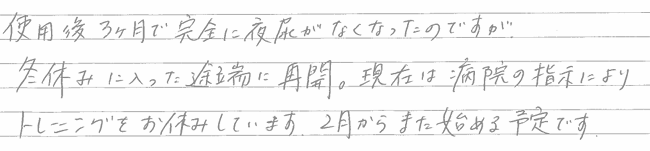 使用後3ヶ月で完全に夜尿がなくなったのですが
冬休みに入った途端に再開。現在は病院の指示により
トレーニングをお休みしています 2月からまた始める予定です